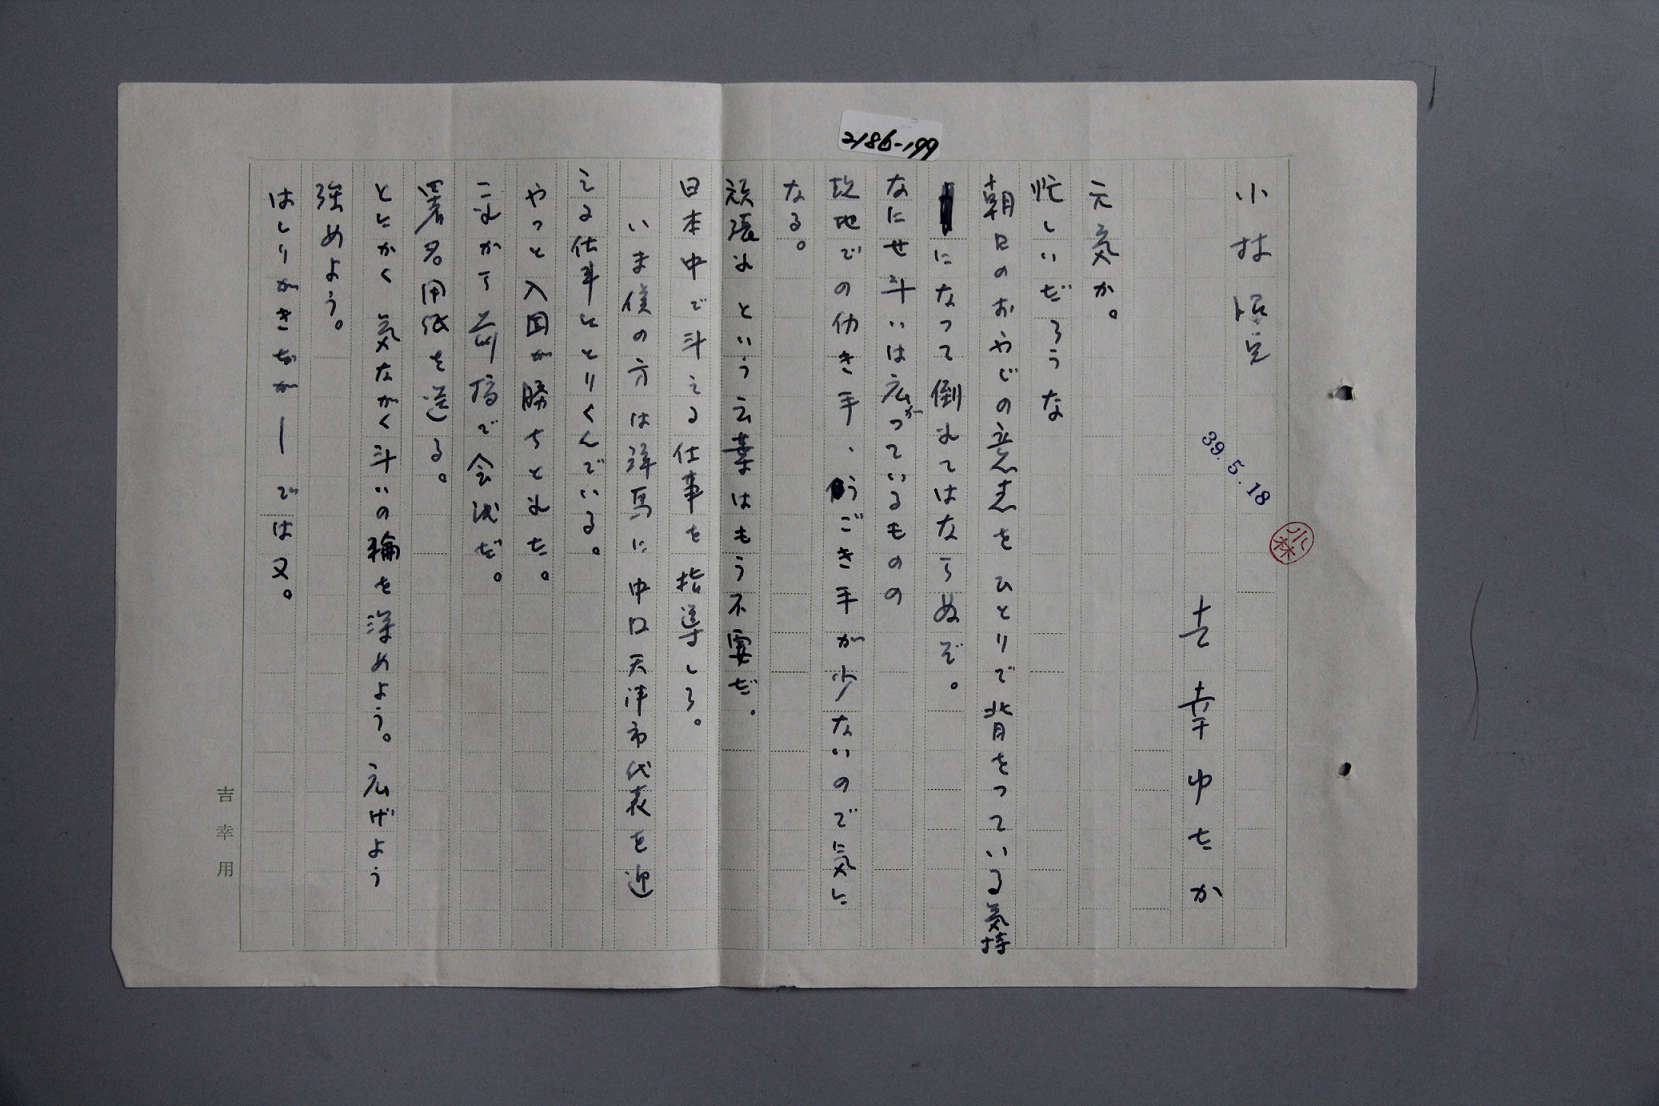 2186-199
小林 兄
39.5.18
小林
吉幸ゆたか
元気か。
忙しいだろうな
朝日のおやじの意志をひとりで背をっている気持
になって倒れてはならぬぞ。
なにせ斗いは広がっているものの
現地での仂き手、うごき手が少ないので気に
なる。
頑張れという言葉はもう不要だ。
日本中で斗える仕事を指導しろ。
いま僕の方は群馬に中口天津市代表を迎
える仕事ととりくんでいる。
やっと入国が勝ちとれた。
これから前橋で会議だ。
署名用紙を送る。
とにかく気ながく斗いの輪を深めよう。広げよう
強めよう。
はしりがきながら ー では又。
吉幸用